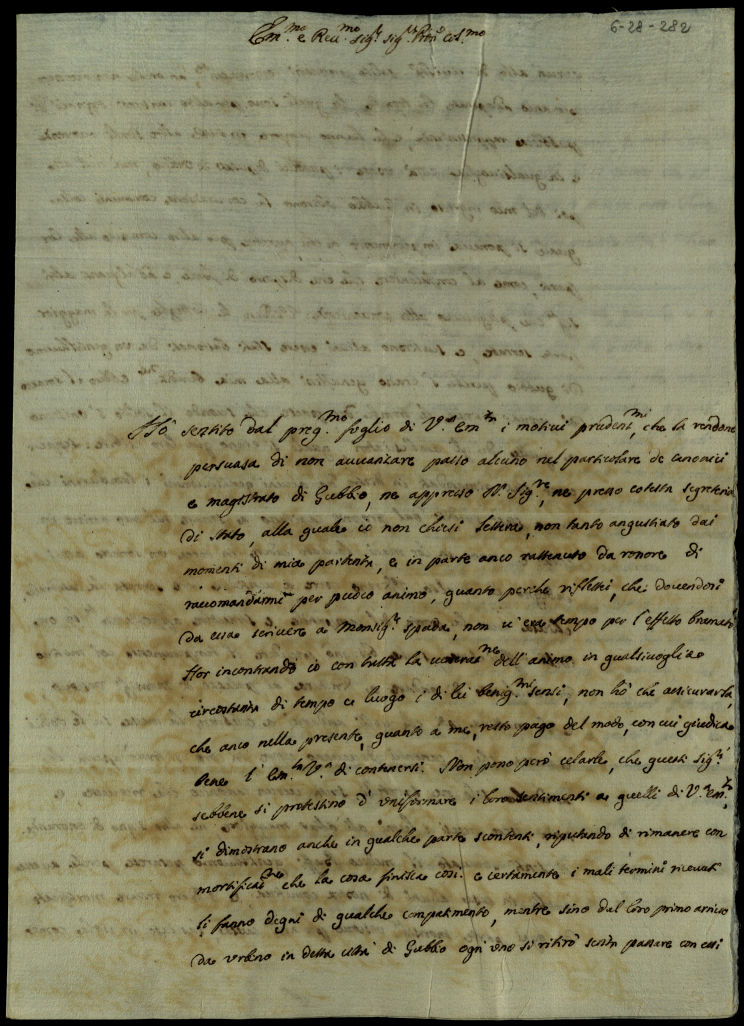 6-28-282
Em.mo e Rev.mo Sig.r Sig.r Pron Col.mo
Hò sentito dal preg.mo foglio di V.a Em.za i motivi prudent.mi, che la rendono
persuasa di non avvanzare passo alcuno nel particolare de canonici
e magistrato di Gubbio, ne appresso N. Sig.re, ne presso cotesta segreteria
di stato, alla quale io non chiesi lettera, non tanto angustiato dai
momenti di mia partenza, e in parte anco rattenuto da rossore di
raccomandarmi per pudco animo, quanto perche riflettei, che dovendosi
da essa scrivere a Monsig.r Spada, non v'era tempo per l'effetto bramato
Hor incontrando io con tutta la veneraz.ne dell'animo in qualsivoglia
circostanza di tempo e luogo i di lei benig.mi sensi, non hò che assicurarla,
che anco nella presente, quanto a me, resto pago del modo, con cui giudica
bene l'Em.za V.a di contenersi. Non posso però celarle, che questi Sig.ri
sebbene si protestino d'uniformare i loro sentimenti a quelli di V.a Em.za,
si dimostrano anche in qualche parte scontenti, riputando di rimanere con
mortificaz.ne che la cosa finisca così: e certamente i mali termini ricevuti
li fanno degni di qualche compatimento, mentre sino dal loro primo arrivo
da Urbino in detta città di Gubbio ogn'uno si ritirò senza passare con essi